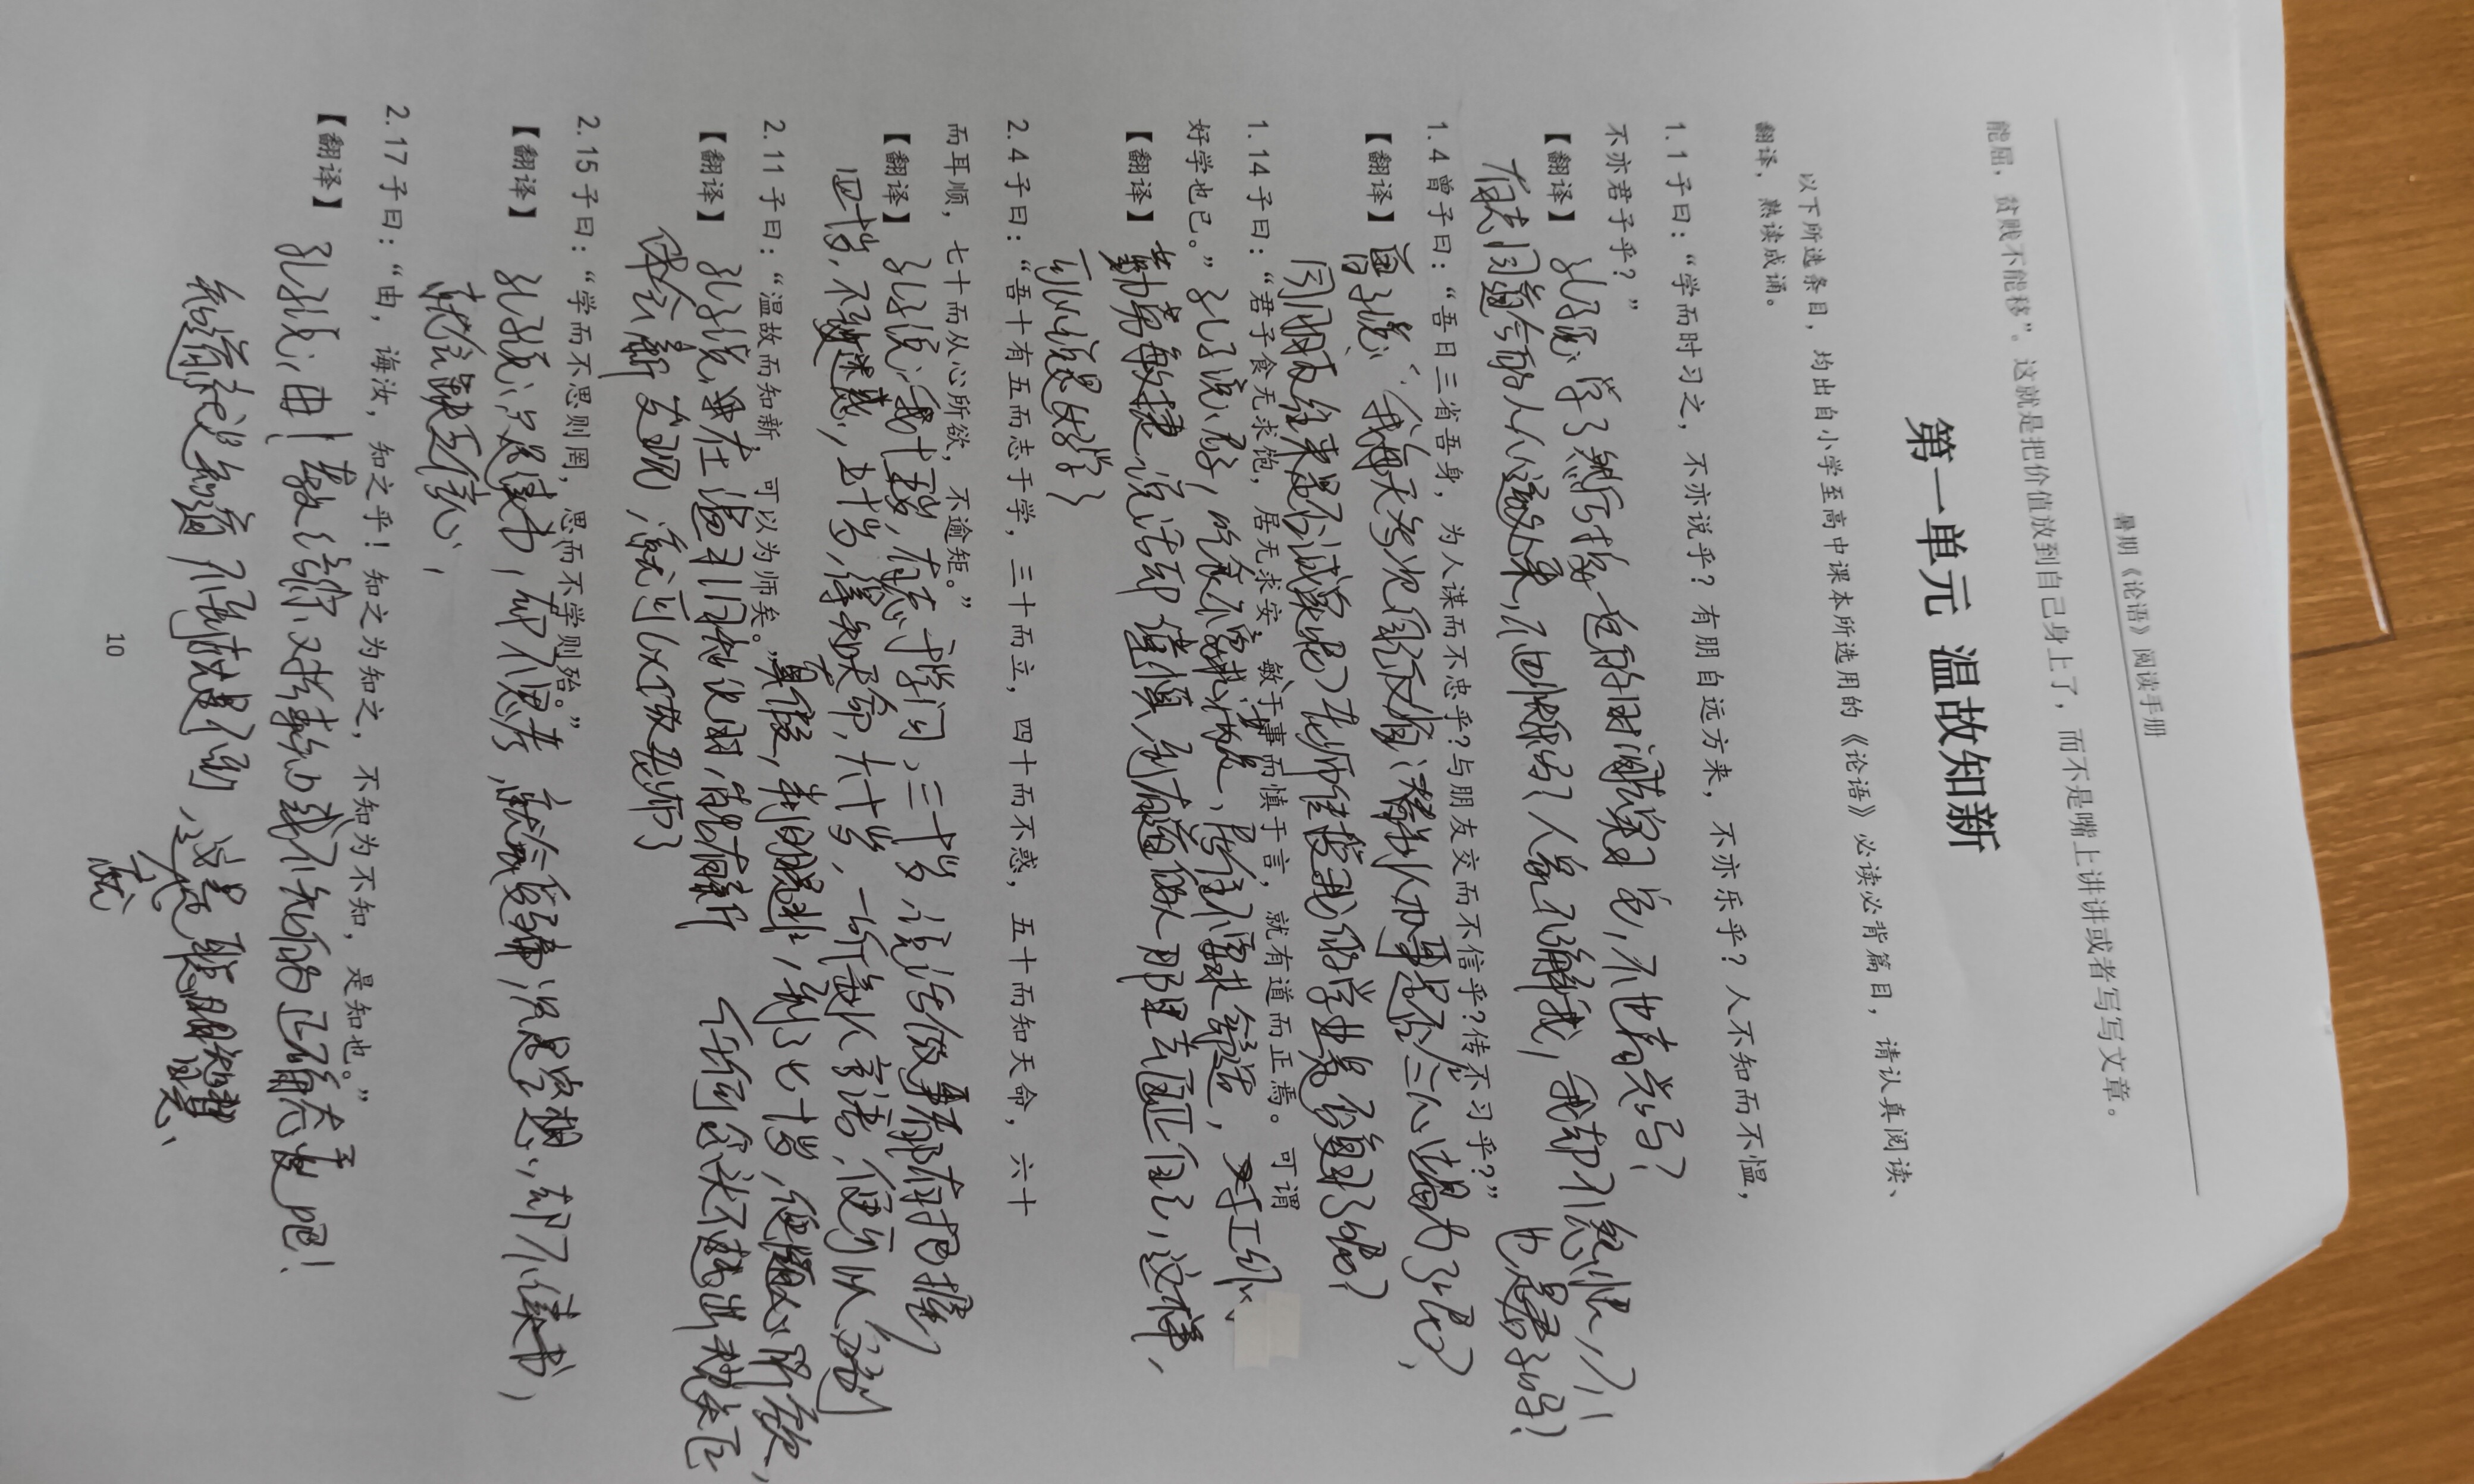 暑期《论语》阅读手册
能屈，贫贱不能移”。这就是把价值放到自己身上了，而不是嘴上讲讲或者写写文章。
第一单元 温故知新
以下所选条目，均出自小学至高中课本所选用的《论语》必读必背篇目，请认真阅读、
翻译，熟读成诵。
1.1 子曰：“学而时习之，不亦说乎？有朋自远方来，不亦乐乎？人不知而不愠，
不亦君子乎？”
【翻译】孔子说：学了然后按一定的时间去实习它，不也高兴吗？
有志同道合的人从远处来，不也快乐吗？人家不了解我，我却不怨恨，
也是君子吗？
1.4 曾子曰：“吾日三省吾身，为人谋而不忠乎？与朋友交而不信乎？传不习乎？”
【翻译】曾子说：“我每天多次自己反省：替别人办事是否尽心竭力了呢？
同朋友往来是否诚实呢？老师传授我的学业是否复习了呢？
1.14 子曰：“君子食无求饱，居无求安，敏于事而慎于言，就有道而正焉。可谓
好学也已。”
【翻译】孔子说：君子，吃食不要求饱足，居住不要求舒适，对工作
勤劳敏捷，说话却谨慎，到有道的人那里去匡正自己，这样，
可以说是好学了
2.4 子曰：“吾十有五而志于学，三十而立，四十而不惑，五十而知天命，六十
而耳顺，七十而从心所欲，不逾矩。”
【翻译】孔子说：我十五岁，有志于学问，三十岁，说话做事都有把握，
四十岁，不被迷惑，五十岁，得知天命，六十岁，一听别人言语，便可以分别
真假，判明是非，到了七十岁，便随心所欲，
任何念头不越出规矩
2.11 子曰：“温故而知新，可以为师矣。”
【翻译】孔子说：在温习旧知识时，能有新
体会、新发现，就可以做老师了
2.15 子曰：“学而不思则罔，思而不学则殆。”
【翻译】孔子说：只是读书，却不思考，就会受骗，只是空想，却不读书，
就会缺乏信心，
2.17 子曰：“由，诲汝，知之乎！知之为知之，不知为不知，是知也。”
【翻译】孔子说：由！教给你对待知或不知的正确态度吧！
知道就是知道，不知道就是不知道，这是聪明智慧
10